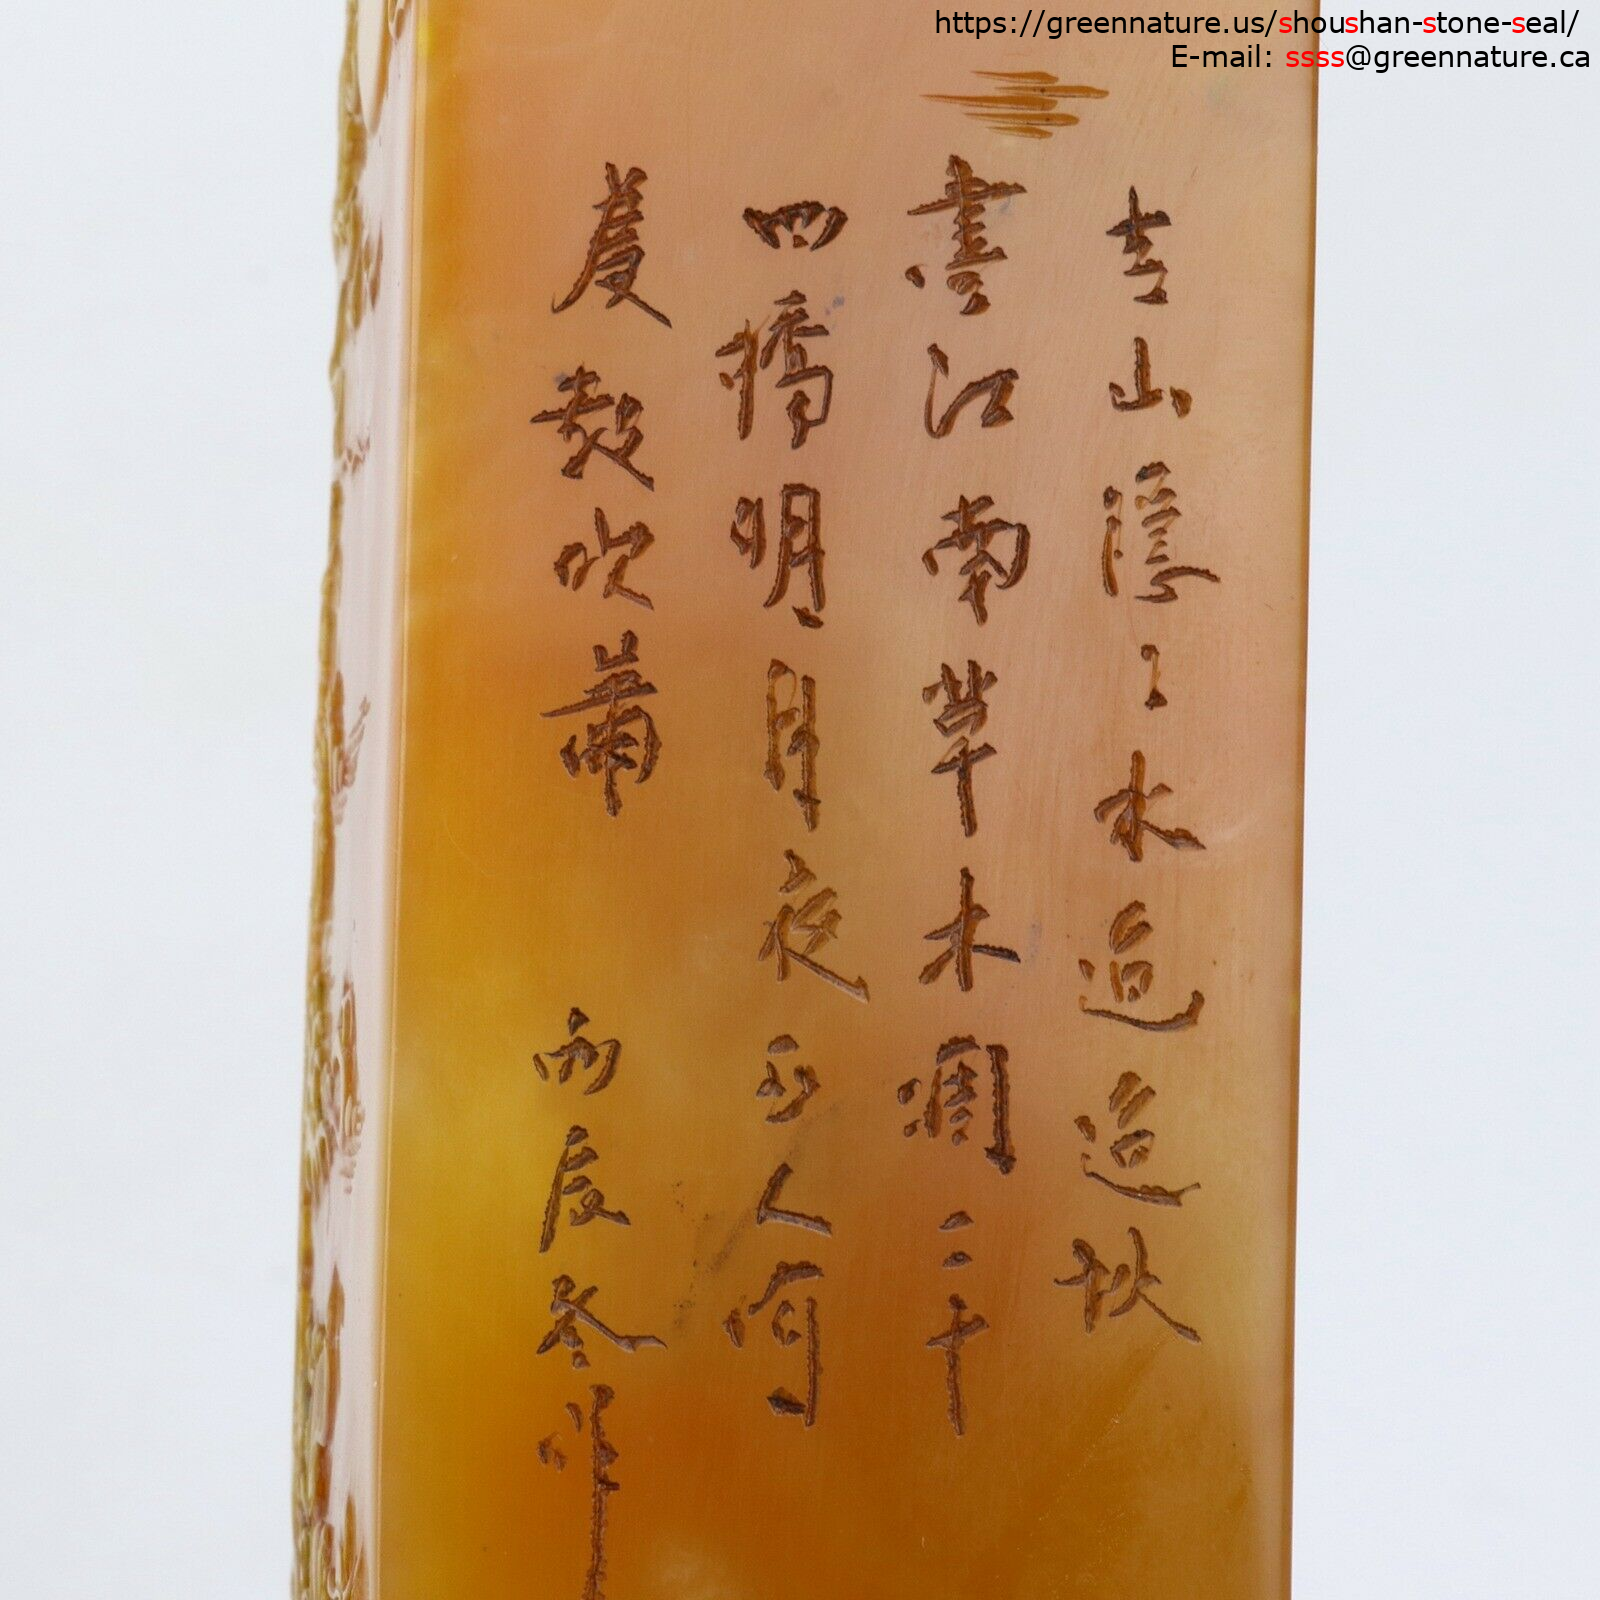 https://greennature.us/shoushan-stone-seal/
E-mail: ssss@greennature.ca
青山隱々水迢迢秋
盡江南草木凋二十
四橋明月夜玉人何
處教吹簫 丙辰冬作